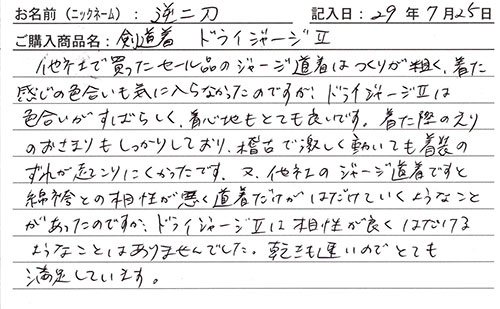 お名前（ニックネーム）：逆二刀 記入日：29年7月25日
ご購入商品名：剣道着 ドライジャージⅡ
他社で買ったセール品のジャージ道着はつくりが粗く、着た
感じの色合いも気に入らなかったのですが、ドライジャージⅡは
色合いがすばらしく、着心地もとても良いです。着た際のえり
のおさまりもしっかりしており、稽古で激しく動いても着装の
ずれが起こりにくかったです。又、他社のジャージ道着ですと
綿袴との相性が悪く道着だけがはだけていくようなこと
があったのですが、ドライジャージⅡは相性が良くはだける
ようなことはありませんでした。乾きも速いのでとても
満足しています。